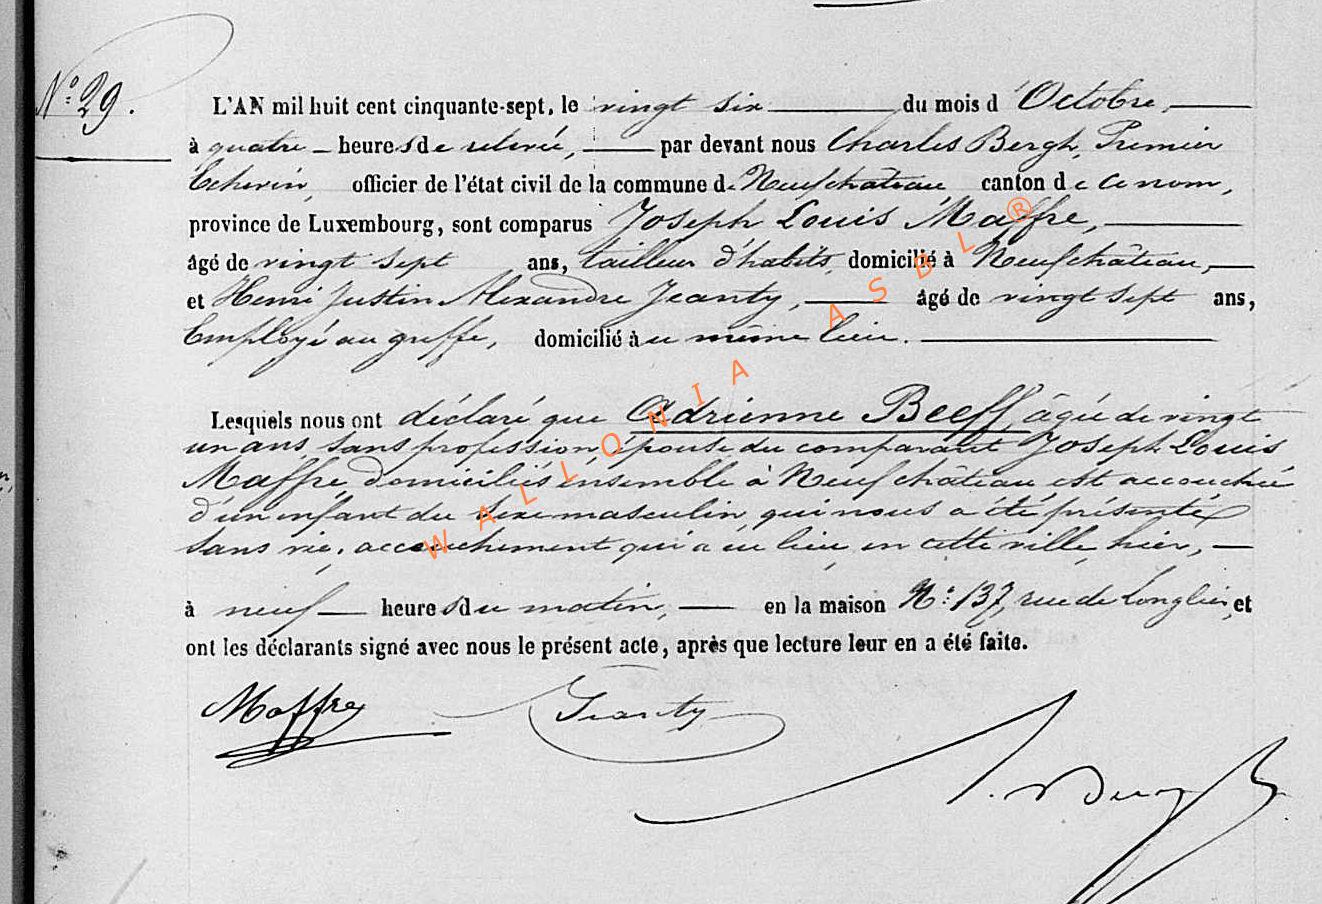 N° 29.
L'AN mil huit cent cinquante-sept, le vingt six du mois d'Octobre,
à quatre heures de relevée, par devant nous Charles Bergh, Premier
Echevin, officier de l'état civil de la commune de Neufchâteau canton de ce nom,
province de Luxembourg, sont comparus Joseph Louis Maffre,
âgé de vingt sept ans, tailleur d'habits, domicilié à Neufchâteau,
et Henri Justin Alexandre Jeanty, âgé de vingt sept ans,
Employé au greffe, domicilié au même lieu.
Lesquels nous ont déclaré que Adrienne Beeff, âgée de vingt
un ans, sans profession, épouse du comparant Joseph Louis
Maffre, domiciliés ensemble à Neufchâteau est accouchée
d'un enfant du sexe masculin, qui nous a été présenté
sans vie, accouchement qui a eu lieu en cette ville, hier,
à neuf heures du matin, en la maison N° 137, rue de Longlier, et
ont les déclarants signé avec nous le présent acte, après que lecture leur en a été faite.
Maffre Jeanty
Bergh
WALLONIA ASBL ®